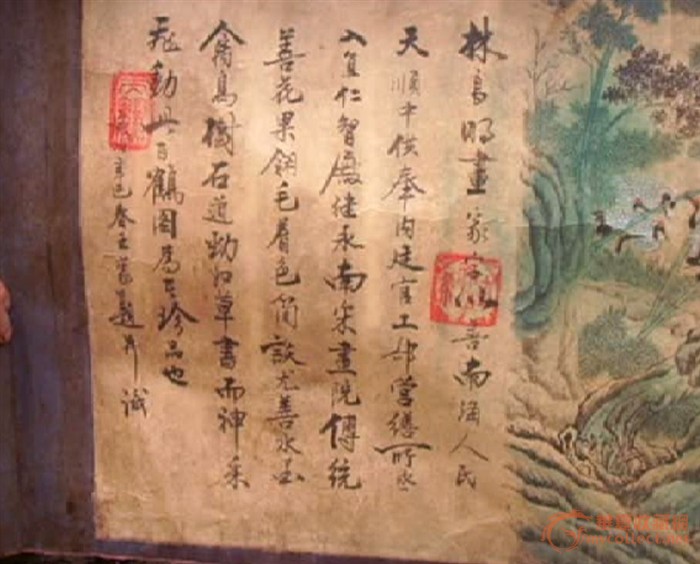 林良明畫家字善南海人氏
天順中供奉內廷官工部營繕所丞
入直仁智殿継承南宋畫院傳統
善花果翎毛着色簡談尤善水墨
禽鳥樹石遒勁如草書而神采
飛動此百鶴圖為其珍品也
辛巳春王題并識